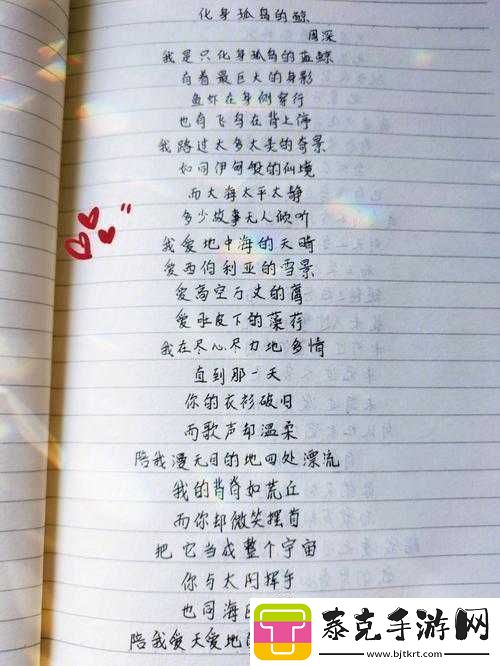 化身孤岛的鲸
周深
我是只化身孤岛的蓝鲸
有着最巨大的身影
鱼虾在身侧穿行
也有飞鸟在背上停
我路过太多太美的奇景
如同伊甸般的仙境
而大海太平太静
多少故事无人倾听
我爱地中海的天晴
爱西伯利亚的雪景
爱高空万丈的鹰
爱皮下的藻荇
我在尽心尽力地多情
直到那一天
你的衣衫破旧
而歌声却温柔
陪我漫无目的地四处漂流
我的背如荒丘
而你却微笑摆首
把它当成整个宇宙
你与太阳挥手
也同海
陪我爱天爱地
泰克手游网
www.bjtkrt.com